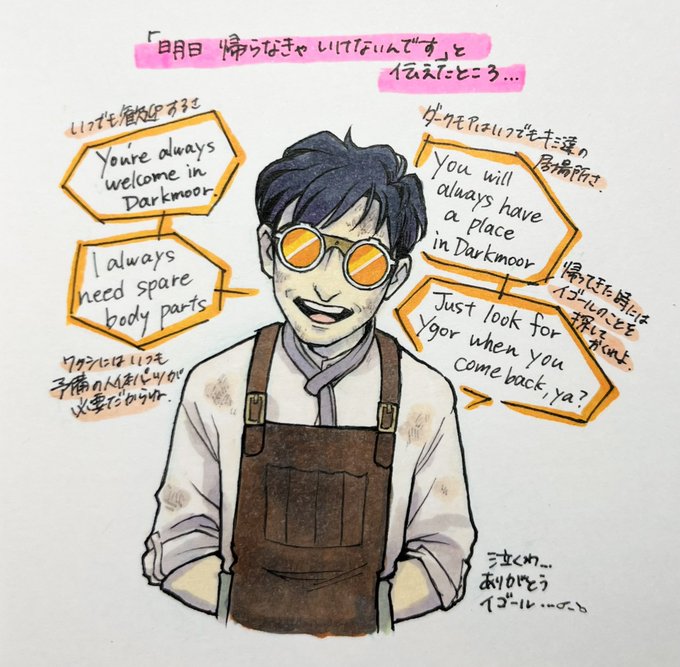 「明日 帰らなきゃ いけないんです」と
伝えたところ...
いつでも歓迎するさ
You're always
welcome in
Darkmoor.
I always
need spare
body parts
ワタシにはいつも
予備の人体パーツが
必要だからね.
ダークモアはいつでもキミ達の
居場所さ.
You will
always have
a place
in Darkmoor
帰ってきた時には
イゴールのことを
探して
おくれよ.
Just look for
Ygor when you
come back, ya?
泣くわ...
ありがとう
イゴール